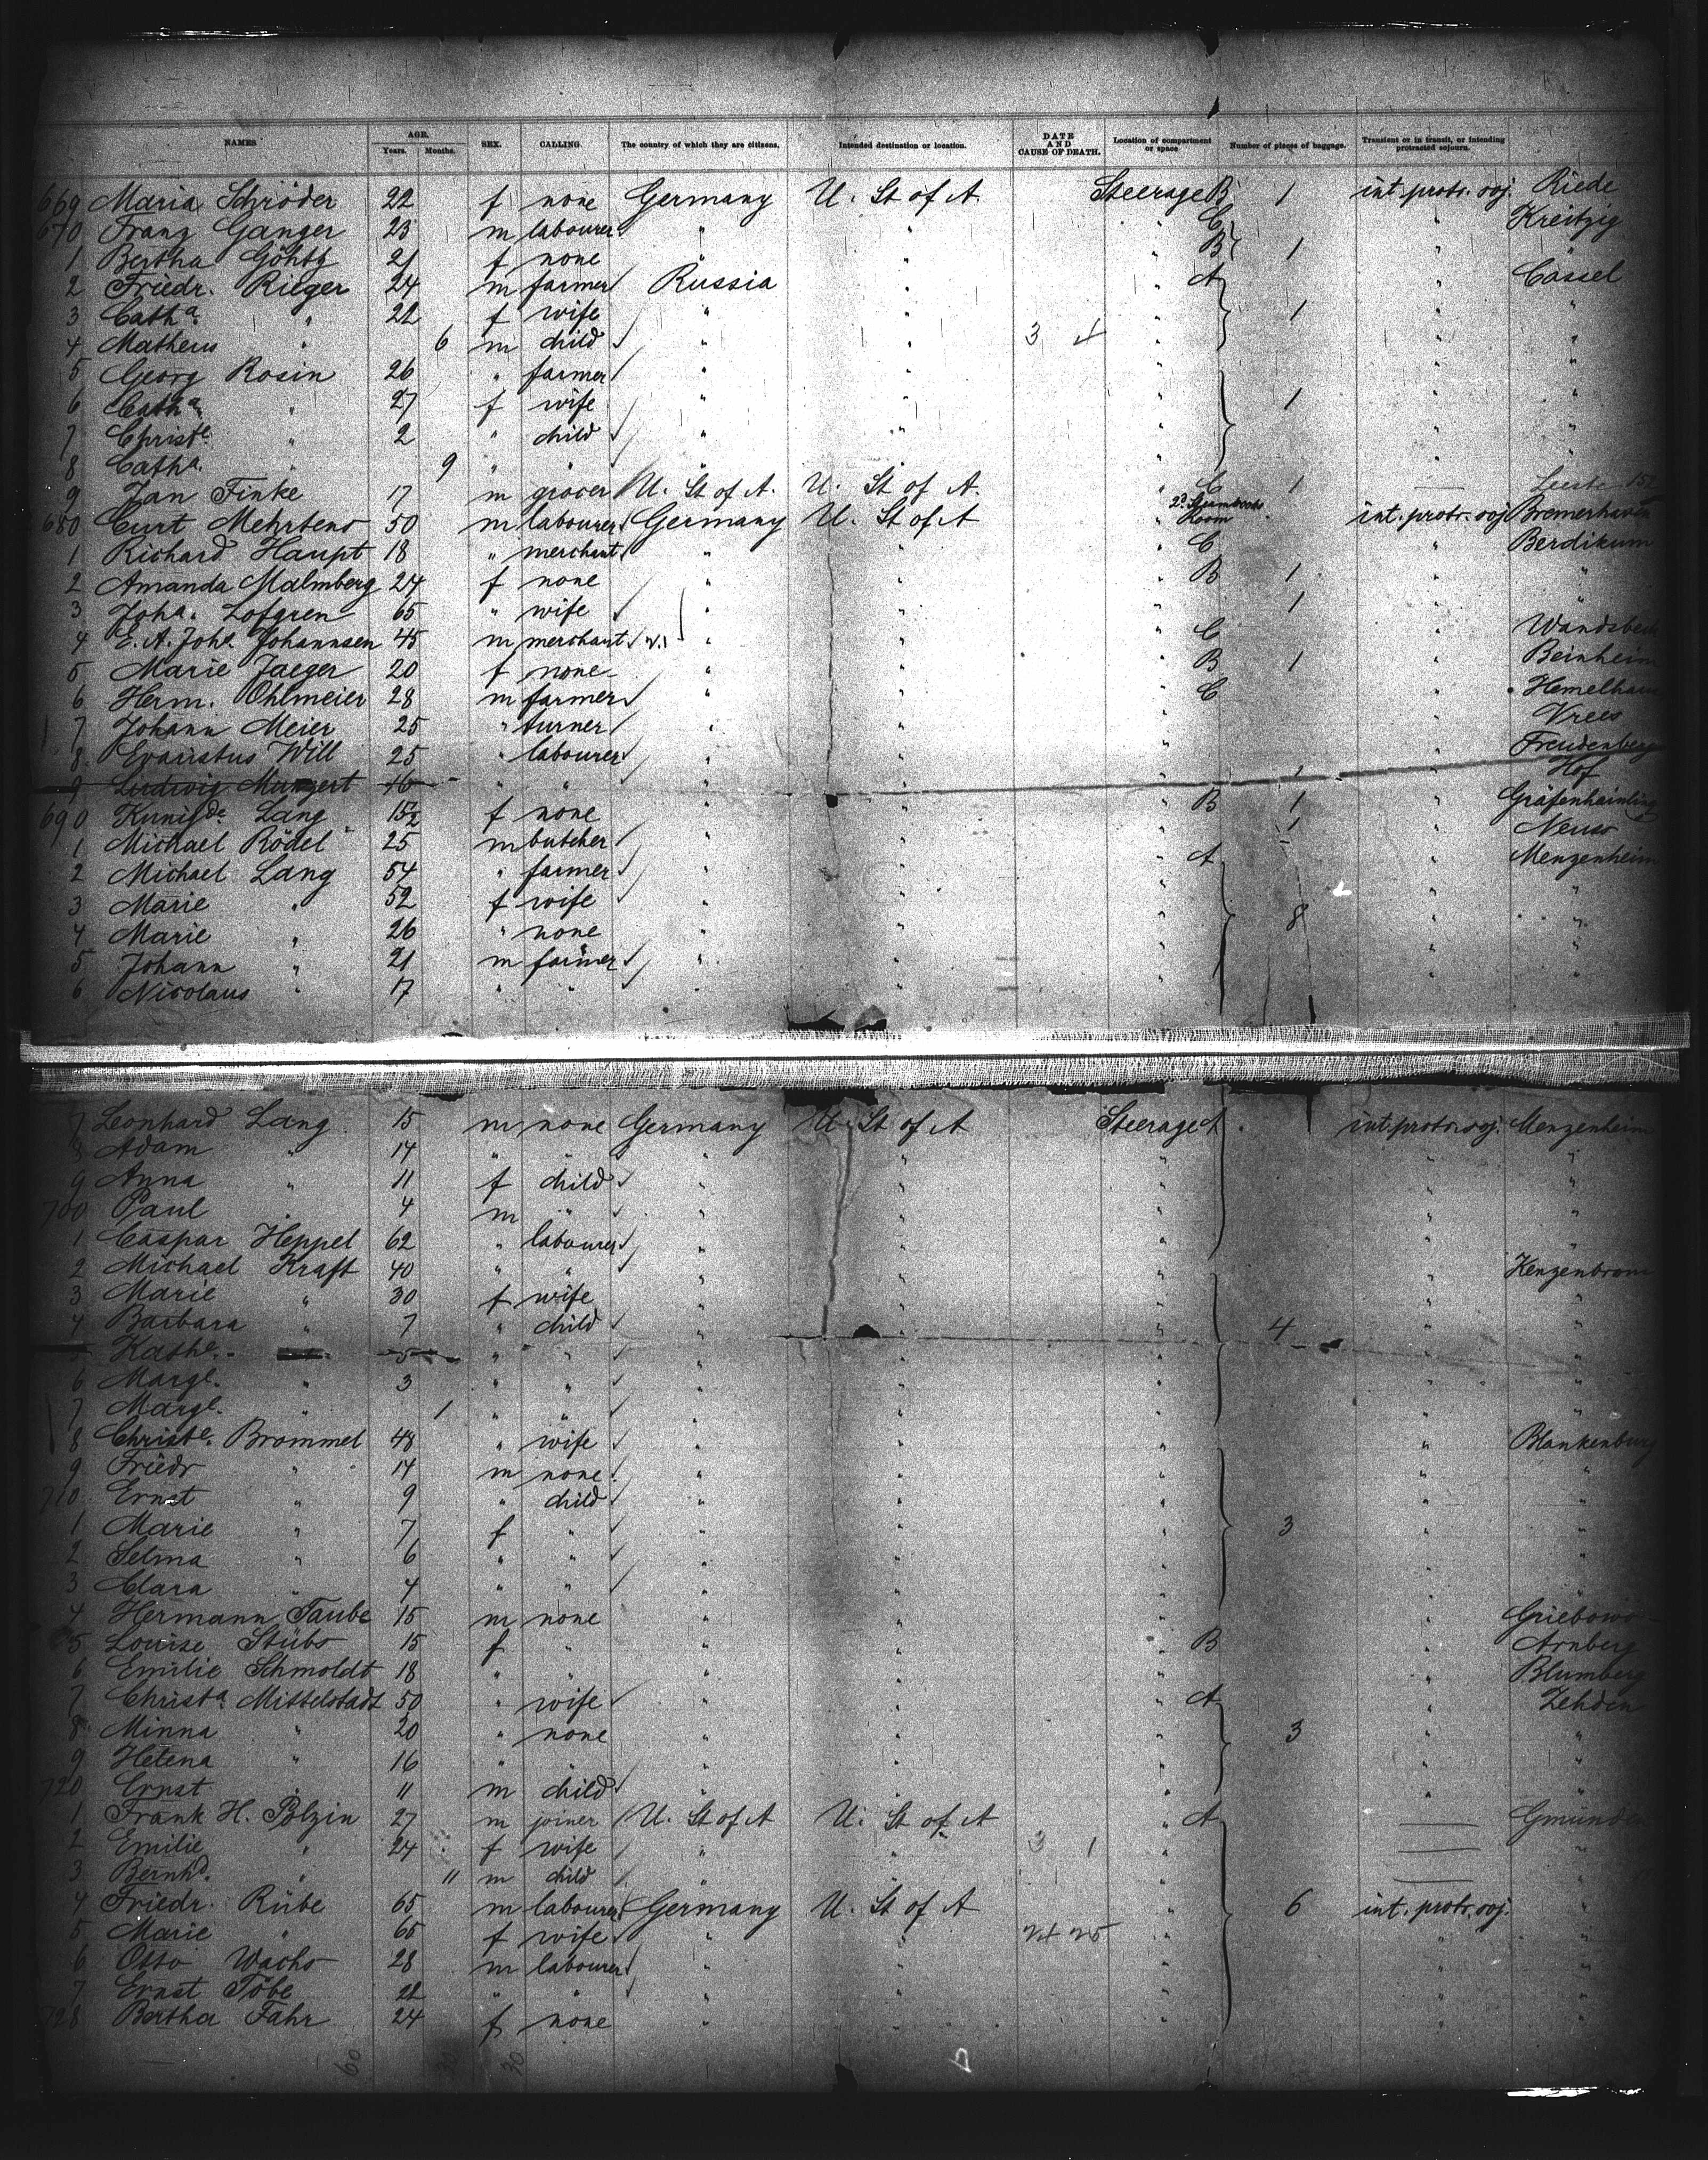 NAMES AGE. Years. Months. SEX. CALLING. The country of which they are citizens. Intended destination or location. DATE AND CAUSE OF DEATH. Location of compartment or space Number of pieces of baggage. Transient or in transit, or intending protracted sojourn.
669 Maria Schröder 22 f none Germany U. St of A. Steerage B 1 int. protr. soj. Riede
670 Franz Ganger 23 m labourer " " " C " Kreitzig
1 Bertha Göhtz 21 f none " " " B 1 " "
2 Friedr. Rieger 24 m farmer Russia " " A " Cassel
3 Catha. " 22 f wife " " " 1 " "
4 Matheus " 6 m child " " 3 4 " " "
5 Georg Rosin 26 " farmer " " " " "
6 Catha. " 27 f wife " " " 1 " "
7 Christe. " 2 " child " " " " "
8 Catha. " 9 " " " " " " "
9 Jan Finke 17 m grocer U. St of A. U. St of A. " C 1 —
680 Curt Mehrtens 50 m labourer Germany U. St of A " Room int. protr. soj. Bremerhaven
1 Richard Haupt 18 " merchant " " " C " Berdikum
2 Amanda Malmberg 24 f none " " " B 1 " "
3 Joha. Lofgren 65 " wife " " " 1 " "
4 E. A. Joha. Johannsen 45 m merchant " " " C " Wandsbeck
5 Marie Jaeger 20 f none " " " B 1 " Beinheim
6 Herm. Ohlmeier 28 m farmer " " " C "
7 Johann Meier 25 " turner " " " " Vrees
8 Evaristus Will 25 " labourer " " " " Freudenberg
9 Ludwig Munzert 16 " " " " " 1 Hof
690 Kunigde. Lang 15½ f none " " " B 1 "
1 Michael Rödel 25 m butcher " " " 1 " Neuss
2 Michael Lang 54 " farmer " " " A " Menzenheim
3 Marie " 52 f wife " " " " "
4 Marie " 26 " none " " " 8 " "
5 Johann " 21 m farmer " " " " "
6 Nicolaus " 17 " " " " " " "
7 Leonhard Lang 15 m none Germany U. St of A Steerage A int. protr. soj. Menzenheim
8 Adam " 14 " " " " " " "
9 Anna " 11 f child " " " " "
700 Paul 4 m " " " " " "
1 Caspar Heppel 62 " labourer " " " " "
2 Michael Kraft 40 " " " " " "
3 Marie " 30 f wife " " " " "
4 Barbara " 7 " child " " " 4 " "
5 Kathe. " 5 " " " " " " "
6 Margt. " 3 " " " " " " "
7 Margt. " 1 " " " " " " "
8 Christe. Brommel 48 " wife " " " " Blankenburg
9 Friedr " 14 m none " " " " "
710 Ernst " 9 " child " " " " "
1 Marie " 7 f " " " " 3 " "
2 Selma " 6 " " " " " " "
3 Clara " 4 " " " " " " "
4 Hermann Taube 15 m none " " " "
5 Louise Stübs 15 f " " " " B " Arnberg
6 Emilie Schmoldt 18 " " " " " " Blumberg
7 Christa. Mittelstadt 50 " wife " " " A " Zehden
8 Minna " 20 " none " " " 3 " "
9 Helena " 16 " " " " " " "
720 Ernst " 11 m child " " " " "
1 Frank H. Polzin 27 m joiner U. St of A U. St of A " A — Gmünden
2 Emilie " 24 f wife " " 3 1 " — "
3 Bernhd. " 11 m child " " " — "
4 Friedr. Rübe 65 m labourer Germany U. St of A " 6 int. protr. soj. "
5 Marie " 65 f wife " " 24 25 " " "
6 Otto Wachs 28 m labourer " " " " "
7 Ernst Töbe 22 " " " " " " "
728 Bertha Fahr 24 f none " " " " "